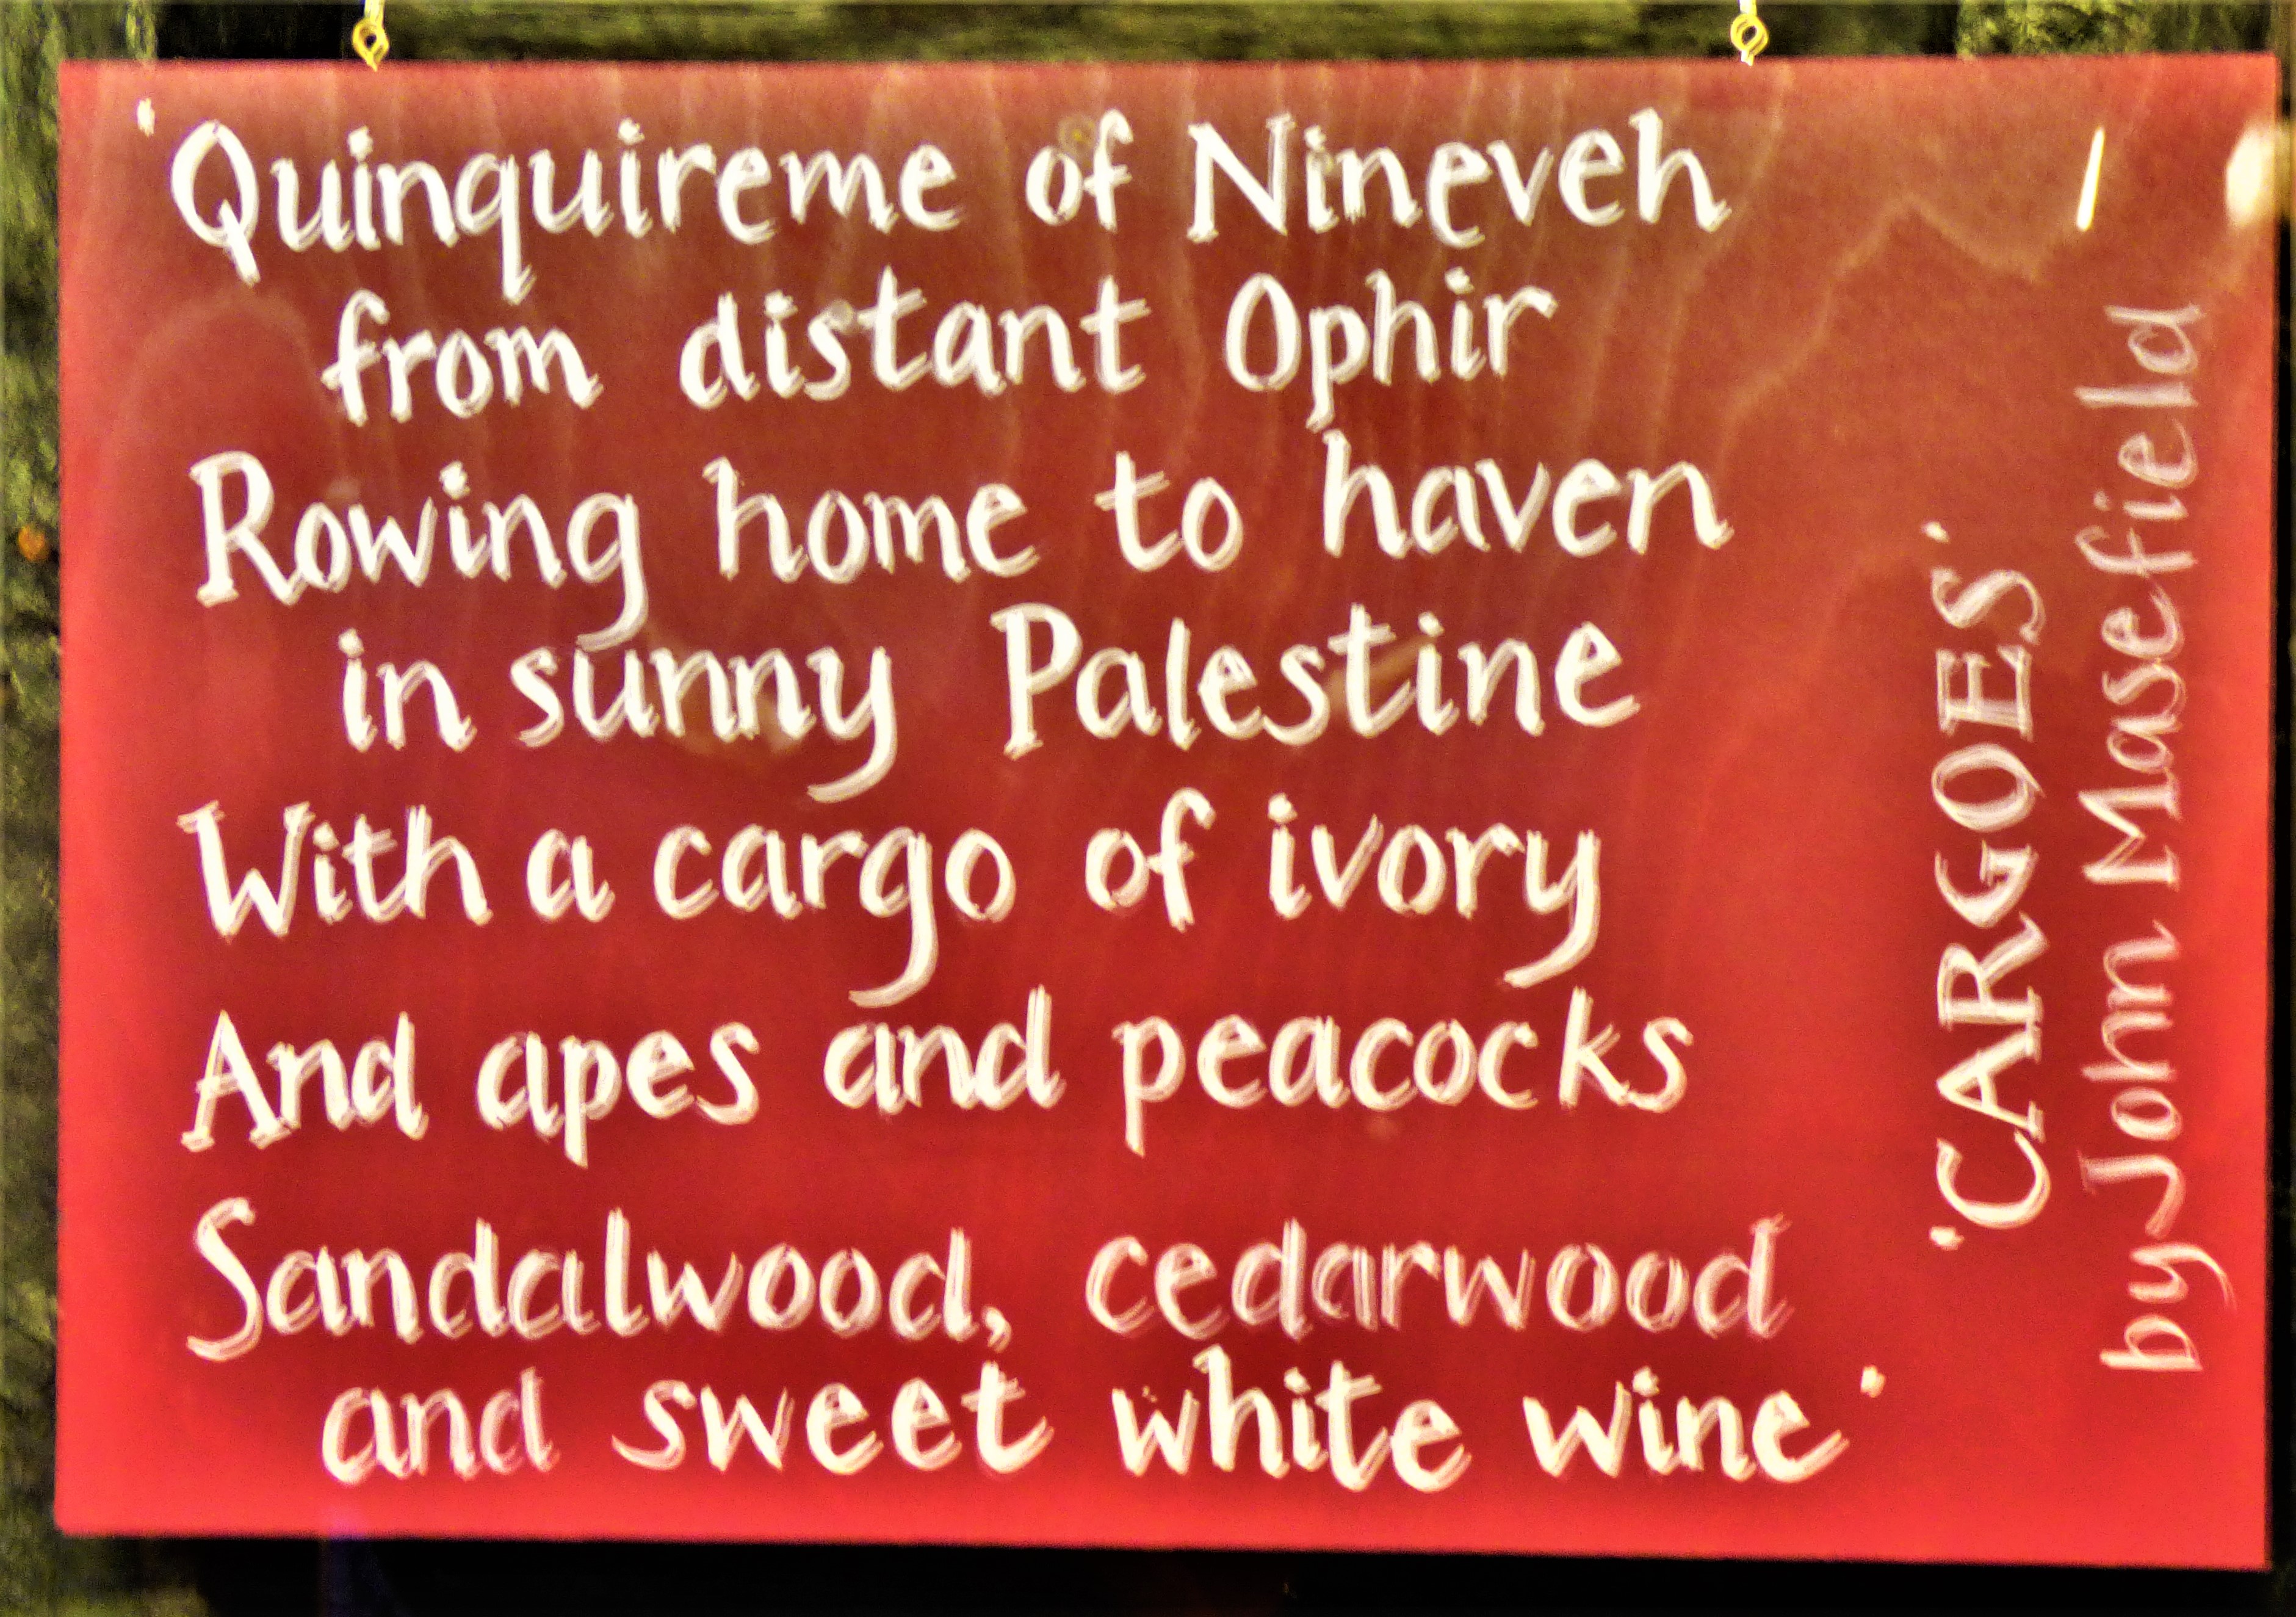 'Quinquireme of Nineveh
from distant Ophir
Rowing home to haven
in sunny Palestine
With a cargo of ivory
And apes and peacocks
Sandalwood, cedarwood
and sweet white wine'
'CARGOES'
by John Masefield